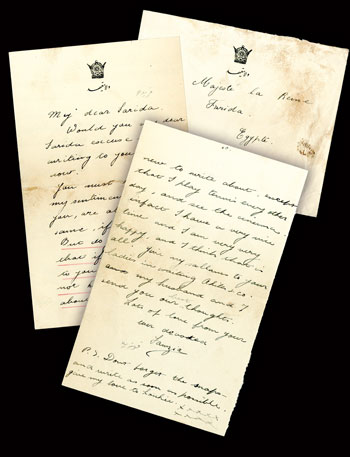 My dear Farida.
Would you dear
Farida excuse
writing to you
now.
You must
my sentiments
you, are as
same, if
But do
that if
is you
not
about
Majesté La Reine
Farida.
Egypte.
new to write about - except
that I play tennis every other
day, and see the cinema.
infact I have a very nice
time and I am very very
happy, and I think that is
all. I join my allams to your
ladies in writing Akila + co.
and my husband and I
send you our thoughts.
Lots of love from your
ever devoted
Fawzia
P.S. Dont forget the snaps.
and write as soon as possible.
give my love to